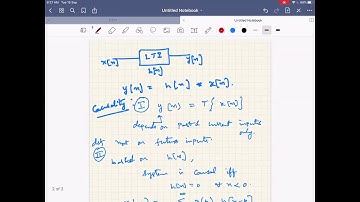 9:27 AM Tue 15 Sep
Untitled Notebook
Untitled Notebook
x[n] LTI y[n]
h[n]
y[n] = h[n] * x[n].
Causality: I y[n] = T{x[n]}
depends on past & current inputs
only.
not on future inputs.
II based on h[n],
system is causal iff
h[n] = 0 ∀ n < 0.
2 of 2